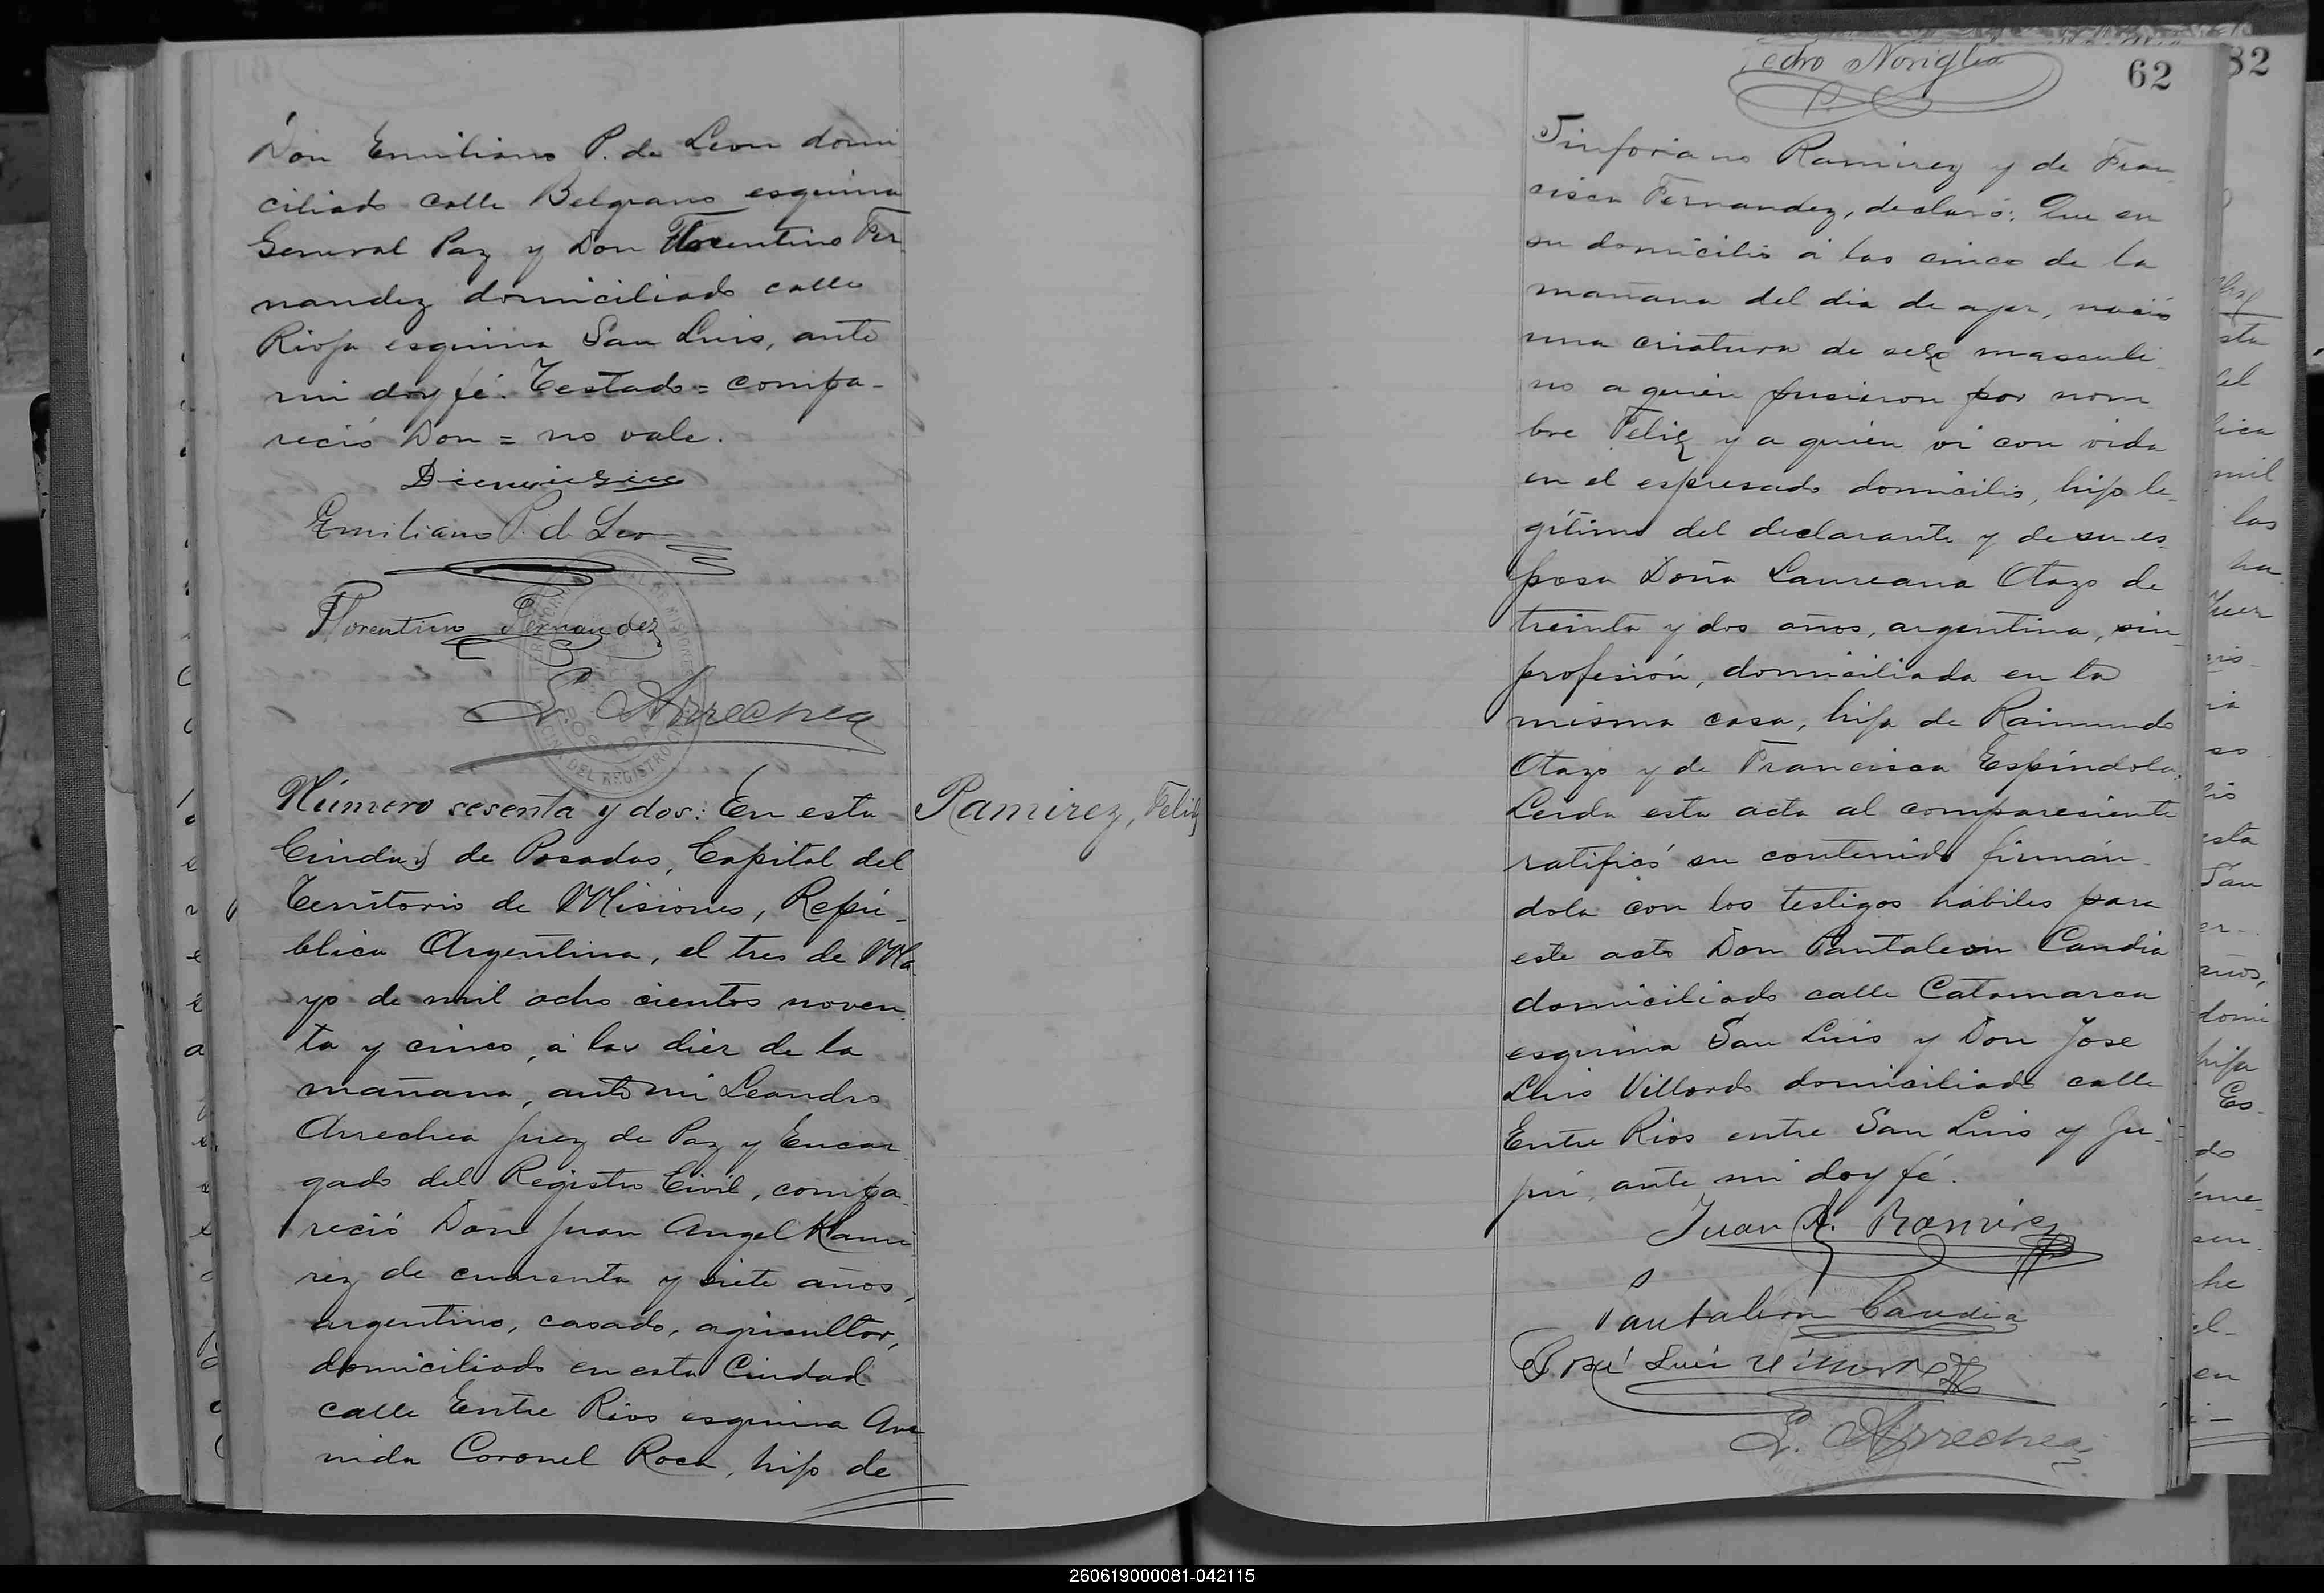 Don Emiliano P. de Leon domi
ciliado calle Belgrano esquina
General Paz y Don Florentino Fer
nandez domiciliado calle
Rioja esquina San Luis, ante
mi doy fé. Testado = compa-
reció Don = no vale.
Emiliano P. de Leon
Florentino Fernandez
L. Arrechea
Número sesenta y dos: En esta
Ciudad de Posadas, Capital del
Territorio de Misiones, Repú-
blica Argentina, el tres de Ma
yo de mil ocho cientos noven
ta y cinco, á las diez de la
mañana, ante mi Leandro
Arrechea Juez de Paz y Encar
gado del Registro Civil, compa
reció Don Juan Angel Rami
rez de cuarenta y siete años,
argentino, casado, agricultor,
domiciliado en esta Ciudad
calle Entre Rios esquina Ave
nida Coronel Roca, hijo de
Ramirez, Feliz
Pedro Noriglia
62
82
Sinforiano Ramirez y de Fran
cisca Fernandez, declaró: Que en
su domicilio á las cinco de la
mañana del dia de ayer, nació
una criatura de sexo masculi
no a quien pusieron por nom
bre Feliz y a quien vi con vida
en el espresado domicilio, hijo le-
gítimo del declarante y de su es
posa Doña Laureana Otazo de
treinta y dos años, argentina, sin
profesión, domiciliada en la
misma casa, hija de Raimundo
Otazo y de Francisca Espíndola.
Leida esta acta al compareciente
ratificó su contenido firmán
dola con los testigos hábiles para
este acto Don Pantaleon Candia
domiciliado calle Catamarca
esquina San Luis y Don Jose
Luis Villordo domiciliado calle
Entre Rios entre San Luis y Ju-
juí, ante mi doy fé.
Juan A. Ramirez
Pantaleon Candia
José Luis Villordo
L. Arrechea
260619000081-042115